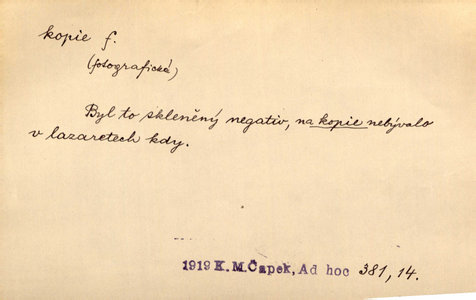 kopie f.
(fotografická)
Byl to skleněný negativ, na kopie nebývalo
v lazaretech kdy.
1919 K. M. Čapek, Ad hoc 381, 14.